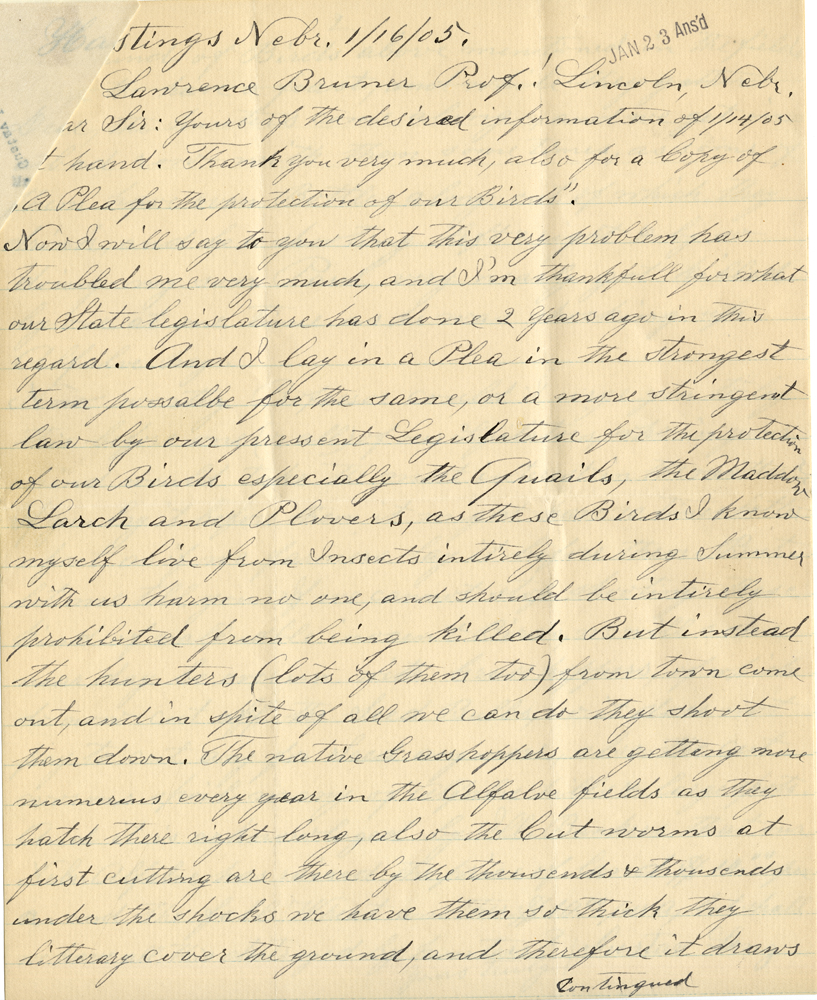 stings Nebr. 1/16/05.
JAN 23 Ans'd
Lawrence Bruner Prof.! Lincoln, Nebr.
ar Sir: Yours of the desired information of 1/14/05
t hand. Thank you very much, also for a Copy of
"A Plea for the protection of our Birds".
Now I will say to you that this very problem has
troubled me very much, and I'm thankfull for what
our State legislature has done 2 Years ago in this
regard. And I lay in a Plea in the strongest
term possalbe for the same, or a more stringent
law by our pressent Legislature for the protection
of our Birds especially the Quails, the Maddow
Larch and Plovers, as these Birds I know
myself live from Insects intirely during Summer
with us harm no one, and should be intirely
prohibited from being killed. But instead
the hunters (lots of them too) from town come
out, and in spite of all we can do they shoot
them down. The native Grasshoppers are getting more
numerius every year in the Alfalve fields as they
hatch there right long, also the Cut worms at
first cutting are there by the thousends & thousends
under the shocks we have them so thick they
litterary cover the ground, and therefore it draws
Contingued